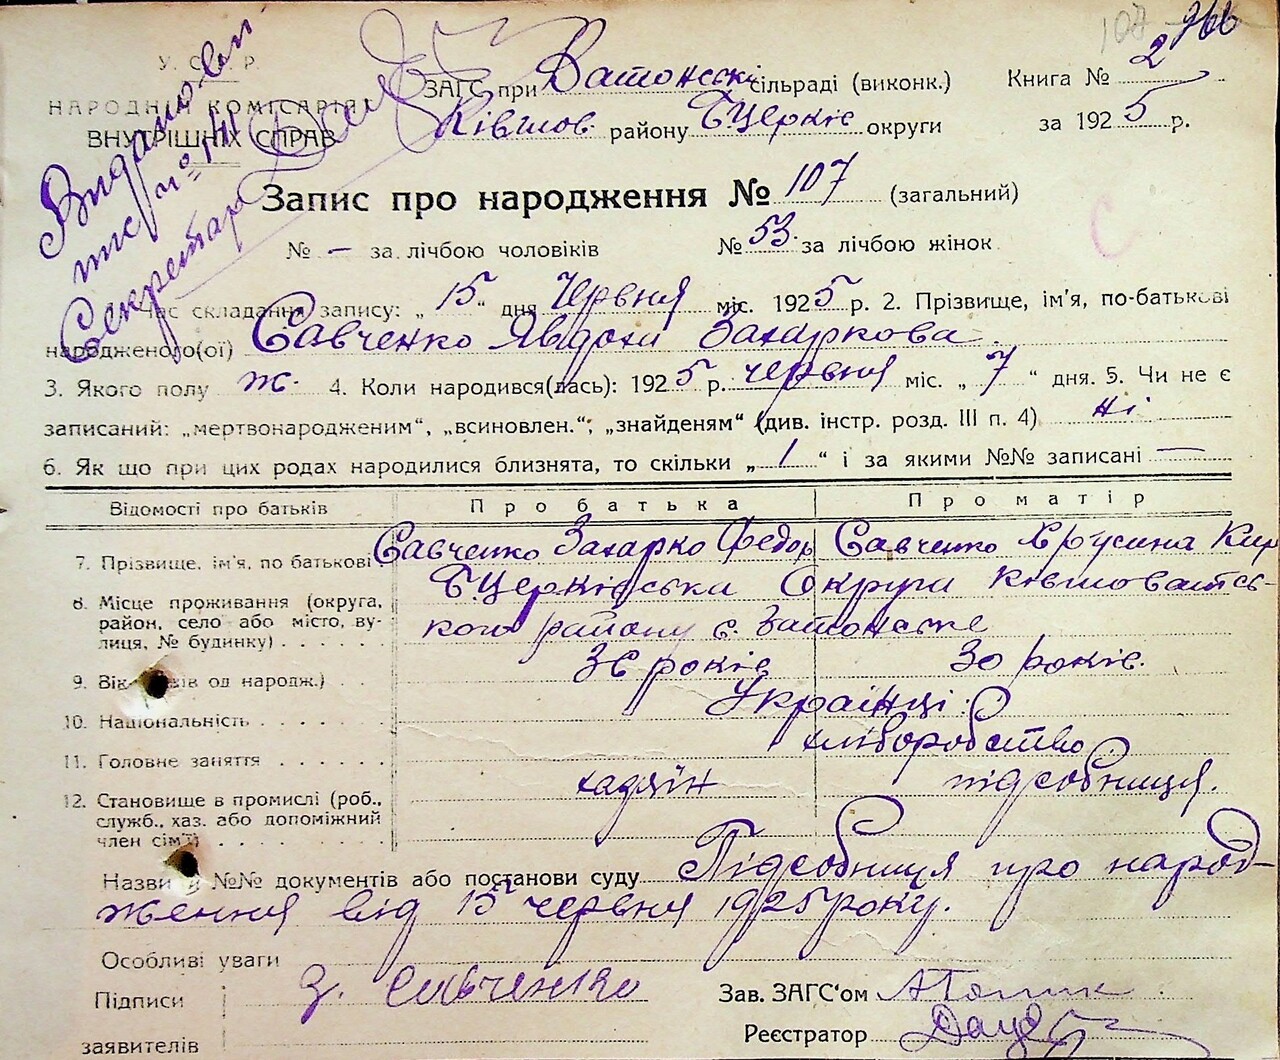 107 266
У. С. Р. Р.
НАРОДНІЙ КОМІСАРІЯТ
ВНУТРІШНІХ СПРАВ
Секретар
ЗАГС при Затонські сільраді (виконк.) Книга № 2
Ківшов. району Б Церків округи за 1925 р.
Запис про народження № 107 (загальний)
№ — за лічбою чоловіків № 53 за лічбою жінок
С
1. Час складання запису: „15“ дня Червня міс. 1925 р. 2. Прізвище, ім'я, по-батькові
народженого(ої) Савченко Явдохи Захаркова.
3. Якого полу ж. 4. Коли народився(лась): 1925 р. червня міс. „7“ дня. 5. Чи не є
записаний: „мертвонародженим“, „всиновлен.“; „знайденям“ (див. інстр. розд. III п. 4) ні
6. Як що при цих родах народилися близнята, то скільки „1“ і за якими №№ записані —
Відомості про батьків Про батька Про матір
7. Прізвище, ім'я, по батькові Савченко Захарко Федор Савченко Хрусина Кир
8. Місце проживання (округа, Б Церківська Округи Ківшоватсь-
район, село або місто, ву- кого району с. Затонське
лиця, № будинку)
9. Вік (років од народж.) 36 років 30 років.
10. Національність Українці
11. Головне заняття хліборобство
12. Становище в промислі (роб., хазяїн підсобниця.
служб., хаз. або допоміжний
член сім'ї)
Назви й №№ документів або постанови суду Підсобниця про народ-
ження від 15 червня 1925 року.
Особливі уваги
Підписи З. Савченко Зав. ЗАГС'ом
заявителів Реєстратор